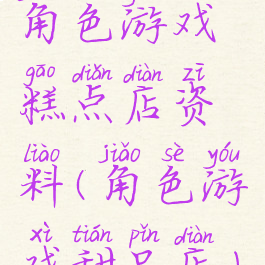 角色游戏
gāo diǎn diàn zī
糕点店资
liào jiǎo sè yóu
料(角色游
xì tián pǐn diàn
戏甜品店)